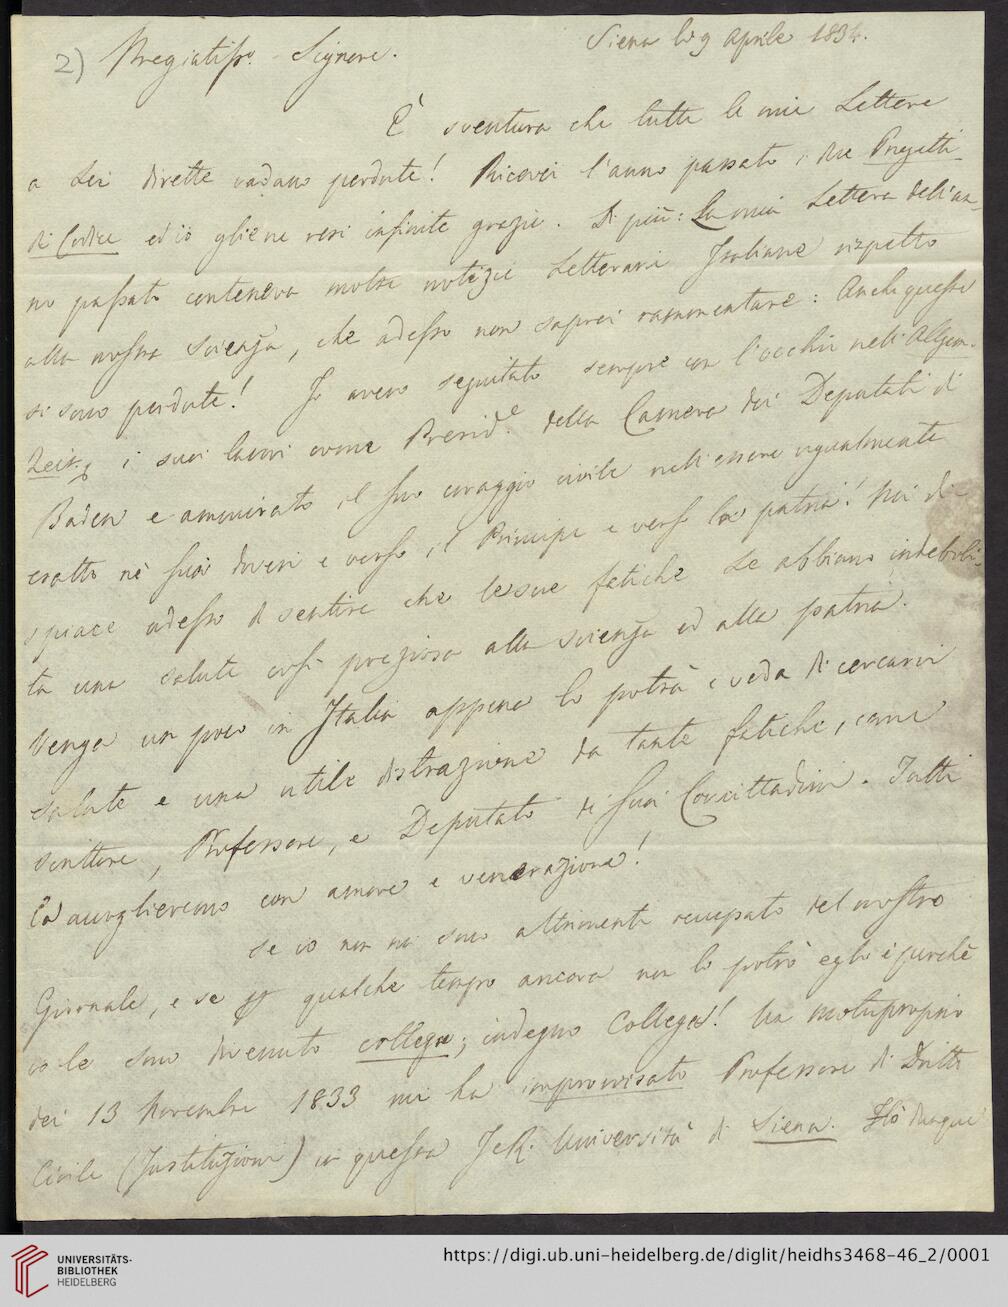 2) Pregiatiss.o Signore. Siena li 9 aprile 1834.
È sventura che tutte le mie Lettere
a Lei dirette vadano perdute! Ricevei l'anno passato i due Progetti
di Codice ed io gliene resi infinite grazie. Di più: La mia Lettera dell'an-
no passato conteneva molte notizie Letterarie Italiane rispetto
alla nostra scienza, che adesso non saprei rammentare: Anche queste
si sono perdute! Io avevo seguitato sempre con l'occhio nell'Allgem.
Zeit.g i suoi lavori come Presid.e della Camera dei Deputati di
Baden e ammirato il suo coraggio civile nell'essere ugualmente
esatto ne' suoi doveri e verso il Principe e verso la patria! Mi di-
spiace adesso di sentire che le sue fatiche Le abbiano indeboli-
ta una salute così preziosa alla scienza ed alla patria.
Venga un poco in Italia appena lo potrà e veda di cercarvi
salute e una utile distrazione da tante fatiche, come
scrittore, Professore, e Deputato di suoi Concittadini. Tutti
La accoglieremo con amore e venerazione!
Se io non mi sono altrimenti occupato del nostro
Giornale, e se qualche tempo ancora non lo potrò egli è perchè
io le sono divenuto collega; indegno Collega! Un motuproprio
dei 13 Novembre 1833 mi ha improvvisato Professore di Dritto
Civile (Instituzioni) in questa I e R. Università di Siena. Hò dunque
UNIVERSITÄTS-
BIBLIOTHEK
HEIDELBERG
https://digi.ub.uni-heidelberg.de/diglit/heidhs3468-46_2/0001